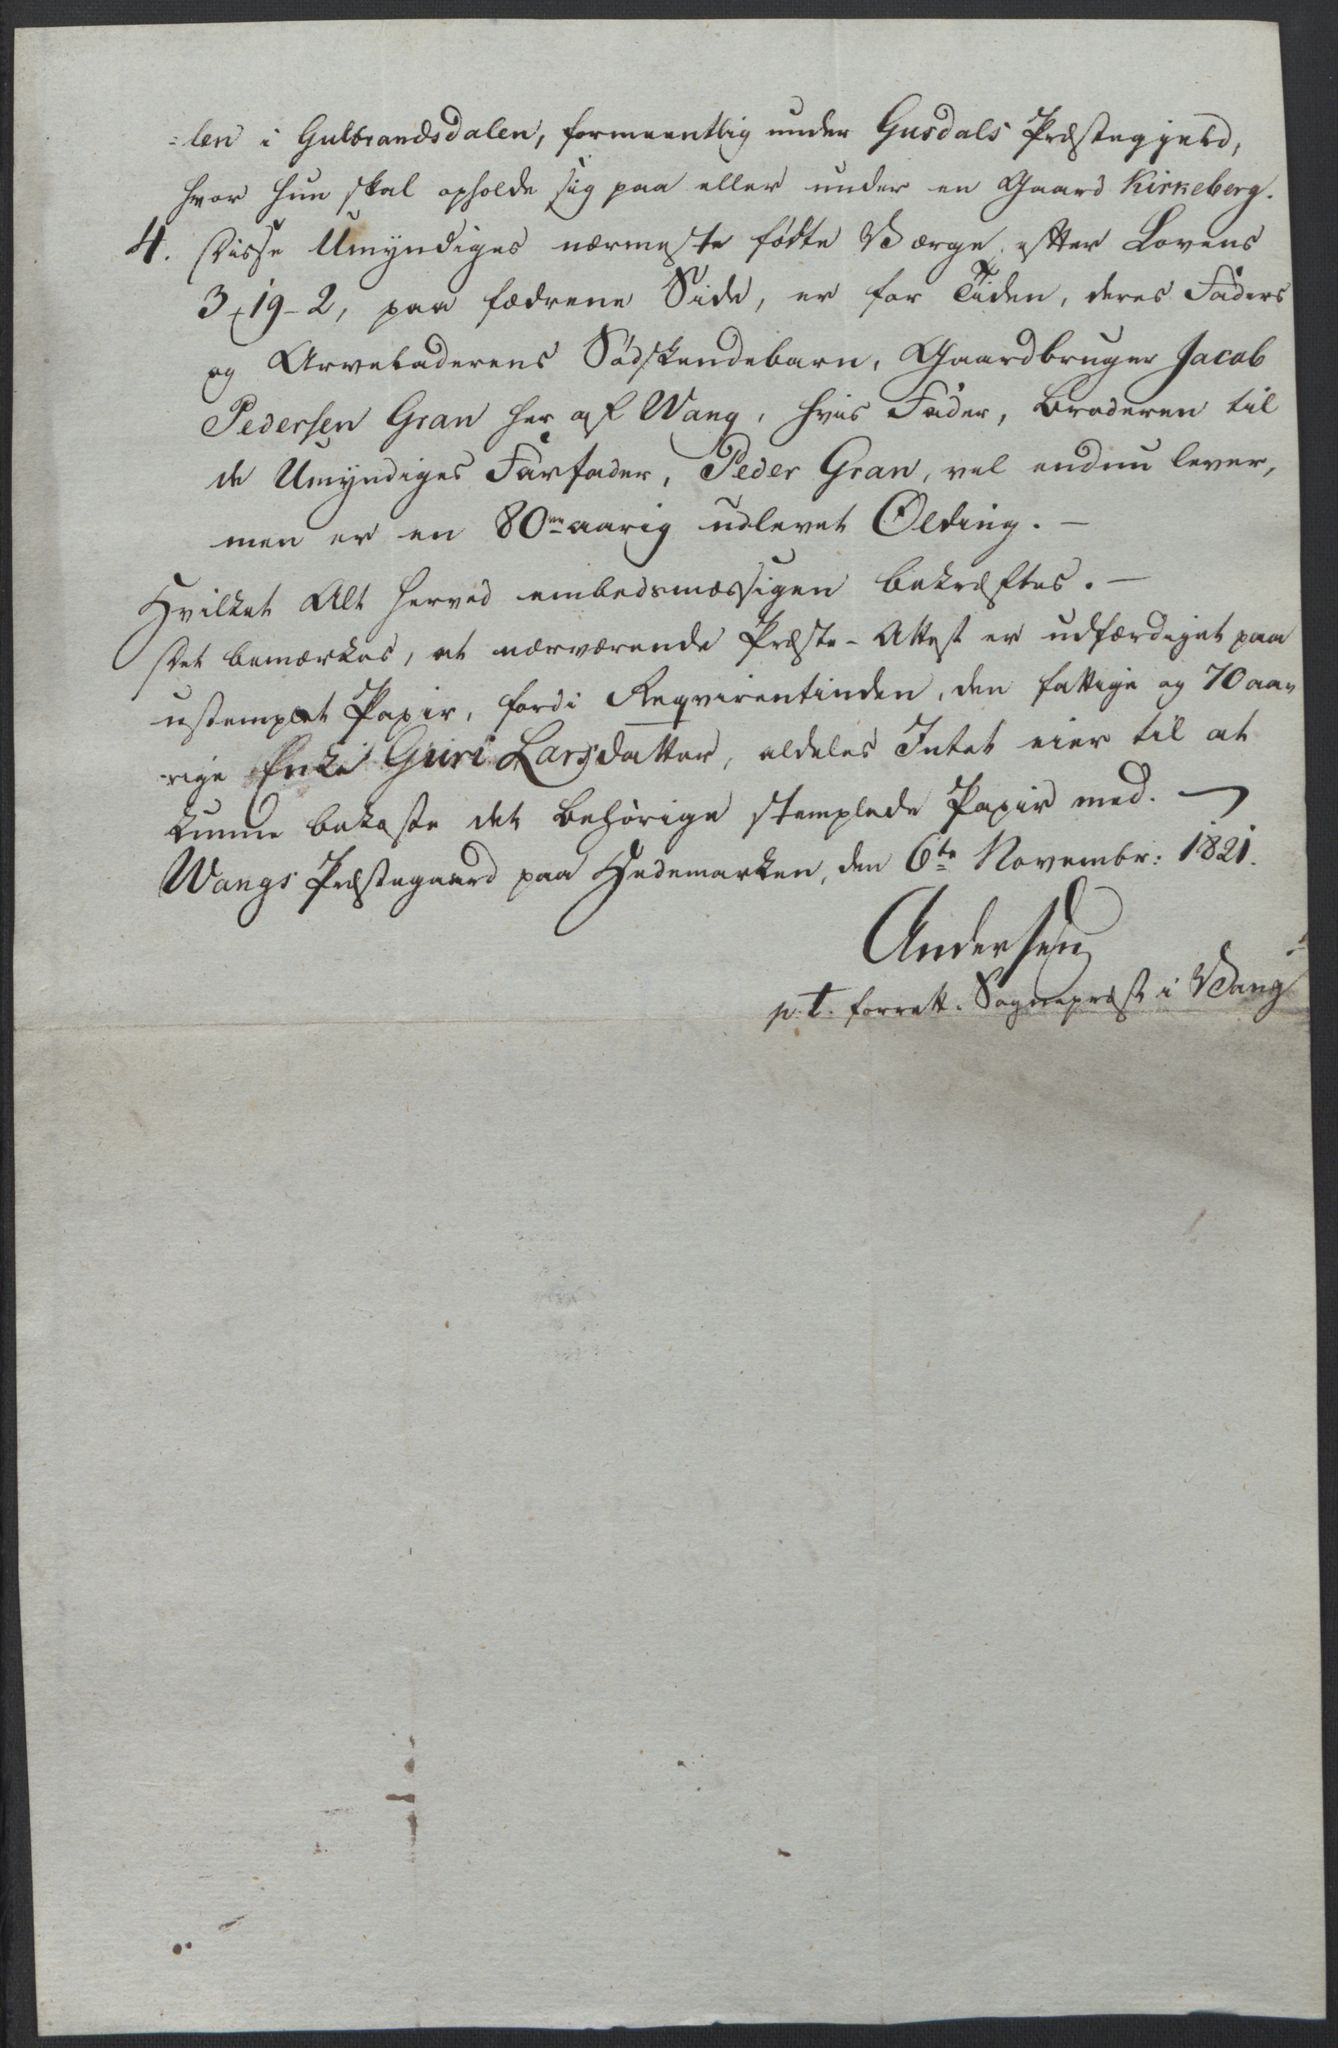 -len i Gulbrandsdalen, formeentlig under Gusdals Præstegjeld,
hvor hun skal opholde sig paa eller under en Gaard Kirkeberg.
4. Disse Umyndiges nærmeste fødte Værge, efter Lovens
3-19-2, paa fædrene Side, er for Tiden, deres Faders
og Arveladerens Södskendebarn, Gaardbruger Jacob
Pedersen Gran her af Wang, hvis Fader, Broderen til
de Umyndiges Farfader, Peder Gran, vel endnu lever,
men er en 80 aarig udlevet Olding. —
Hvilket Alt herved embedsmæssigen bekræftes. —
Det bemærkes, at nærværende Præste-Attest er udfærdiget paa
ustemplet Papir, fordi Reqvirentinden, den fattige og 70 aa-
rige Enke Guri Larsdatter, aldeles Intet eier til at
kunne bekoste det behørige stemplede Papir med. —
Wangs Præstegaard paa Hedemarken, den 6te Novembr: 1821.
Andersen
p.t. forrett. Sognepræst i Vang